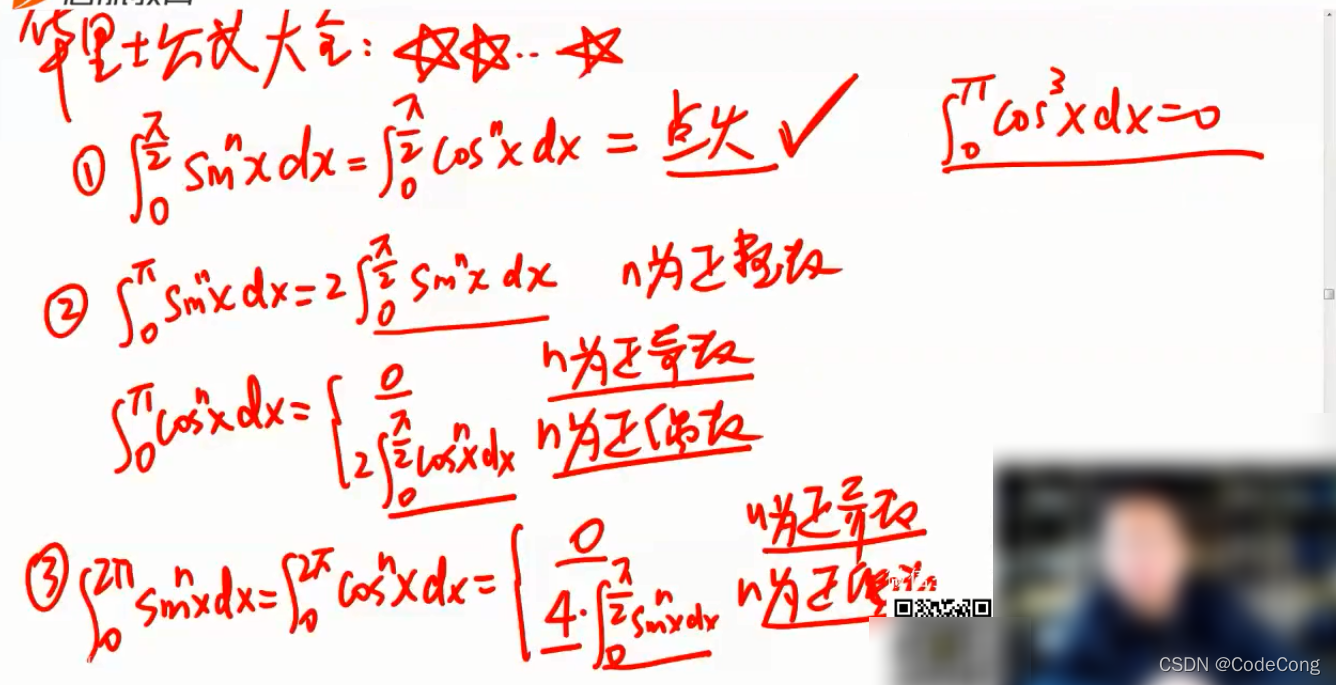 华里士公式大全：☆☆…☆
① ∫₀^(π/2) sinⁿx dx = ∫₀^(π/2) cosⁿx dx = 点火 ✓
∫₀^π cos³x dx = 0
② ∫₀^π sinⁿx dx = 2∫₀^(π/2) sinⁿx dx n为正整数
∫₀^π cosⁿx dx = {
0 n为正奇数
2∫₀^(π/2) cosⁿx dx n为正偶数
③ ∫₀^(2π) sinⁿx dx = ∫₀^(2π) cosⁿx dx = {
0 n为正奇数
4·∫₀^(π/2) sinⁿx dx n为正偶
CSDN @CodeCong